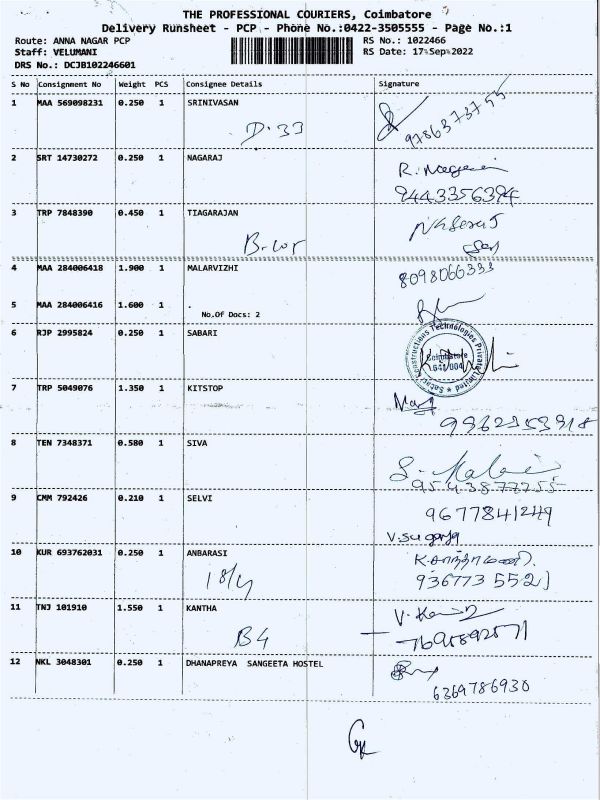 THE PROFESSIONAL COURIERS, Coimbatore
Delivery Runsheet - PCP - Phone No.:0422-3505555 - Page No.:1
Route: ANNA NAGAR PCP RS No.: 1022466
Staff: VELUMANI RS Date: 17-Sep-2022
DRS No.: DCJB102246601
S No Consignment No Weight PCS Consignee Details Signature
1 MAA 569098231 0.250 1 SRINIVASAN
D-33 9786373755
2 SRT 14730272 0.250 1 NAGARAJ
9443356394
3 TRP 7848390 0.450 1 TIAGARAJAN
4 MAA 284006418 1.900 1 MALARVIZHI 8098066333
5 MAA 284006416 1.600 1 .
No.Of Docs: 2
6 RJP 2995824 0.250 1 SABARI
Constructions Technologies Private Limited
Coimbatore
641 004
7 TRP 5049076 1.350 1 KITSTOP
9962353918
8 TEN 7348371 0.580 1 SIVA
9543877255
9 CMM 792426 0.210 1 SELVI 9677841249
V.Suganya
10 KUR 693762031 0.250 1 ANBARASI
18/4 9367735521
11 TNJ 101910 1.550 1 KANTHA
B4 7695892571
12 NKL 3048301 0.250 1 DHANAPREYA SANGEETA HOSTEL
6369786930